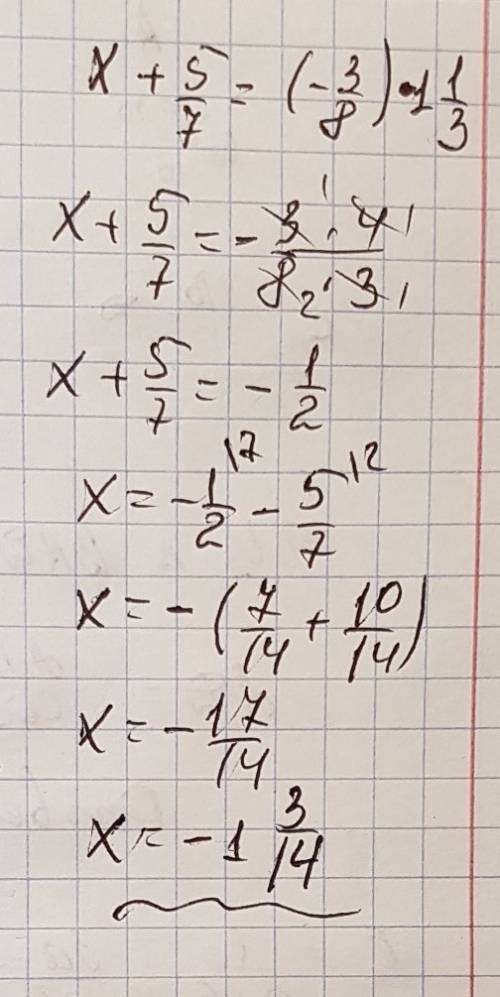 x + 5/7 = (-3/8) · 1 1/3
x + 5/7 = - 3¹ · 4¹ / 8₂ · 3₁
x + 5/7 = - 1/2
x = - 1/2 \7 - 5/7 \2
x = - (7/14 + 10/14)
x = - 17/14
x = - 1 3/14